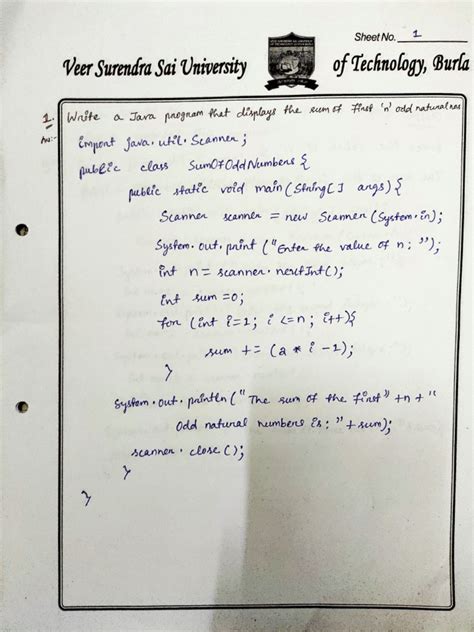 Sheet No. 1
Veer Surendra Sai University of Technology, Burla
1. Write a Java program that displays the sum of first 'n' odd natural nos
Ans:- import java.util.Scanner;
public class SumOfOddNumbers {
public static void main(String[] args) {
Scanner scanner = new Scanner(System.in);
System.out.print("Enter the value of n: ");
int n = scanner.nextInt();
int sum = 0;
for (int i=1; i <=n; i++){
sum += (2 * i -1);
}
System.out.println("The sum of the first" +n+ "
Odd natural numbers is:" + sum);
scanner.close();
}
}